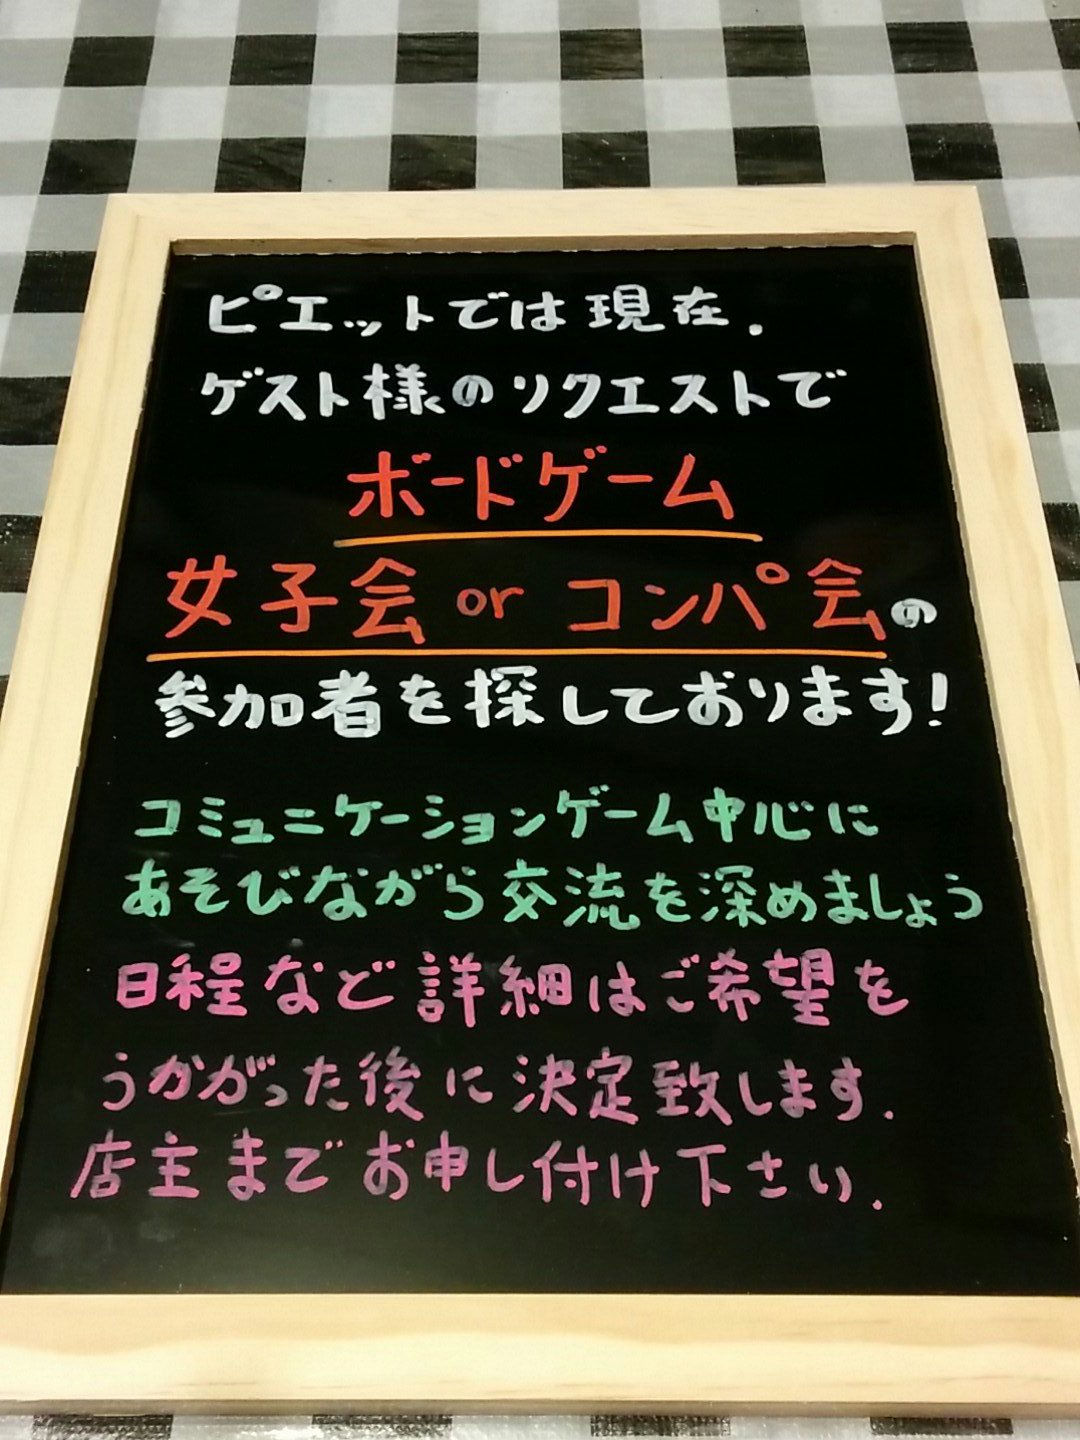 ピエットでは現在.
ゲスト様のリクエストで
ボードゲーム
女子会 or コンパ会の
参加者を探しております!
コミュニケーションゲーム中心に
あそびながら交流を深めましょう
日程など詳細はご希望を
うかがった後に決定致します.
店主までお申し付け下さい.